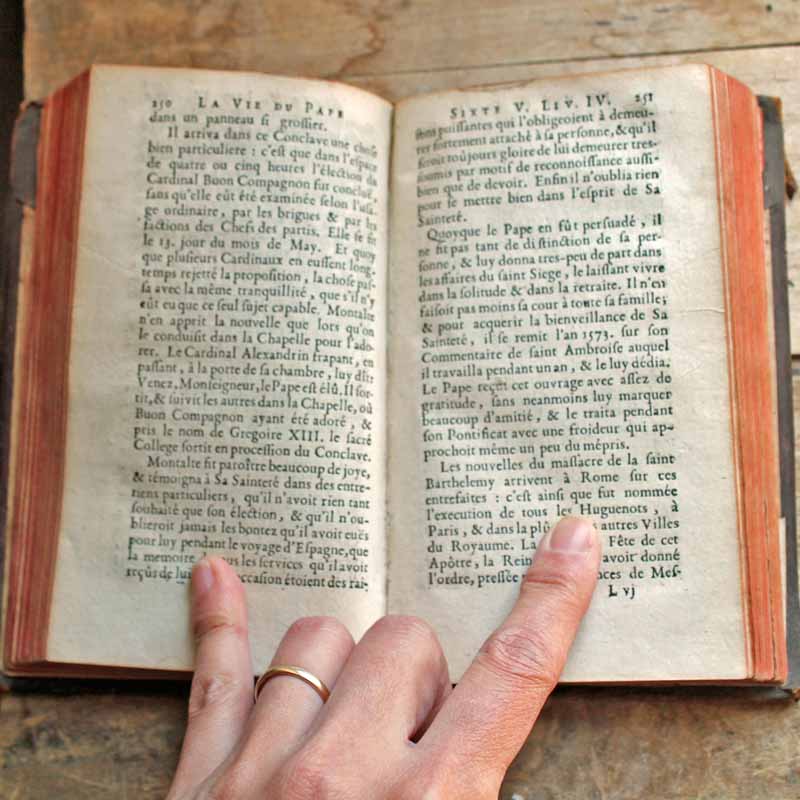 250 LA VIE DU PAPE
dans un panneau si grossier.
Il arriva dans ce Conclave une chose
bien particuliere : c'est que dans l'espace
de quatre ou cinq heures l'élection du
Cardinal Buon Compagnon fut conclue,
sans qu'elle eût été examinée selon l'usa-
ge ordinaire, par les brigues & par les
factions des Chefs des partis. Elle se fit
le 13. jour du mois de May. Et quoy
que plusieurs Cardinaux en eussent long-
temps rejetté la proposition, la chose pas-
sa avec la même tranquillité, que s'il n'y
eût eu que ce seul sujet capable. Montalte
n'en apprit la nouvelle que lors qu'on
le conduisit dans la Chapelle pour l'ado-
rer. Le Cardinal Alexandrin frapant, en
passant, à la porte de sa chambre, luy dist
Venez, Monseigneur, le Pape est élû. Il sor-
tit, & suivit les autres dans la Chapelle, où
Buon Compagnon ayant été adoré, &
pris le nom de Gregoire XIII. le sacré
College sortit en procession du Conclave.
Montalte fit paroître beaucoup de joye,
& témoigna à Sa Sainteté dans des entre-
tiens particuliers, qu'il n'avoit rien tant
souhaité que son élection, & qu'il n'ou-
blieroit jamais les bontez qu'il avoit euës
pour luy pendant le voyage d'Espagne, que
la memoire les services qu'il avoit
reçûs de lui occasion étoient des rai-
SIXTE V. LIV. IV. 251
sons puissantes qui l'obligeoient à demeu-
rer fortement attaché à sa personne, & qu'il
feroit toûjours gloire de lui demeurer tres-
soumis par motif de reconnoissance aussi-
bien que de devoir. Enfin il n'oublia rien
pour se mettre bien dans l'esprit de Sa
Sainteté.
Quoyque le Pape en fût persuadé, il
ne fit pas tant de distinction de sa per-
sonne, & luy donna tres-peu de part dans
les affaires du saint Siege, le laissant vivre
dans la solitude & dans la retraite. Il n'en
faisoit pas moins sa cour à toute sa famille;
& pour acquerir la bienveillance de Sa
Sainteté, il se remit l'an 1573. sur son
Commentaire de saint Ambroise auquel
il travailla pendant un an, & le luy dédia.
Le Pape reçut cet ouvrage avec assez de
gratitude, sans neanmoins luy marquer
beaucoup d'amitié, & le traita pendant
son Pontificat avec une froideur qui ap-
prochoit même un peu du mépris.
Les nouvelles du massacre de la saint
Barthelemy arrivent à Rome sur ces
entrefaites : c'est ainsi que fut nommée
l'execution de tous les Huguenots, à
Paris, & dans la plû autres Villes
du Royaume. La Fête de cet
Apôtre, la Rein avoit donné
l'ordre, pressée ces de Mes-
L vj